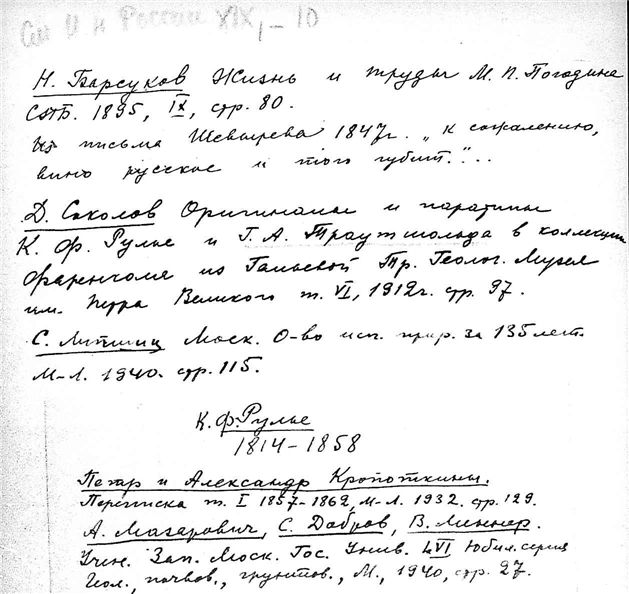 См И н России XIX, – 10
Н. Барсуков Жизнь и труды М. П. Погодина
СПБ. 1895, IX, стр. 80.
Из письма Шевырева 1847 г. „К сожалению,
вино русское и того губит."...
Д. Соколов Оригиналы и паратипы
К. Ф. Рулье и Г. А. Траутшольда в коллекции
Фаренколя из Гальевой Тр. Геолог. Музея
им. Петра Великого т. VI, 1912 г. стр. 97.
С. Липшиц Моск. О-во исп. прир. за 135 лет.
М-Л. 1940. стр. 115.
К. Ф. Рулье
1814 – 1858
Петр и Александр Кропоткины.
Переписка т. I 1857-1862, М-Л. 1932. стр. 129.
А. Мазарович, С. Добров, В. Миннер.
Учен. Зап. Моск. Гос. Унив. LVI Юбил. серия
Геол., почвов., грунтов., М., 1940, стр. 27.